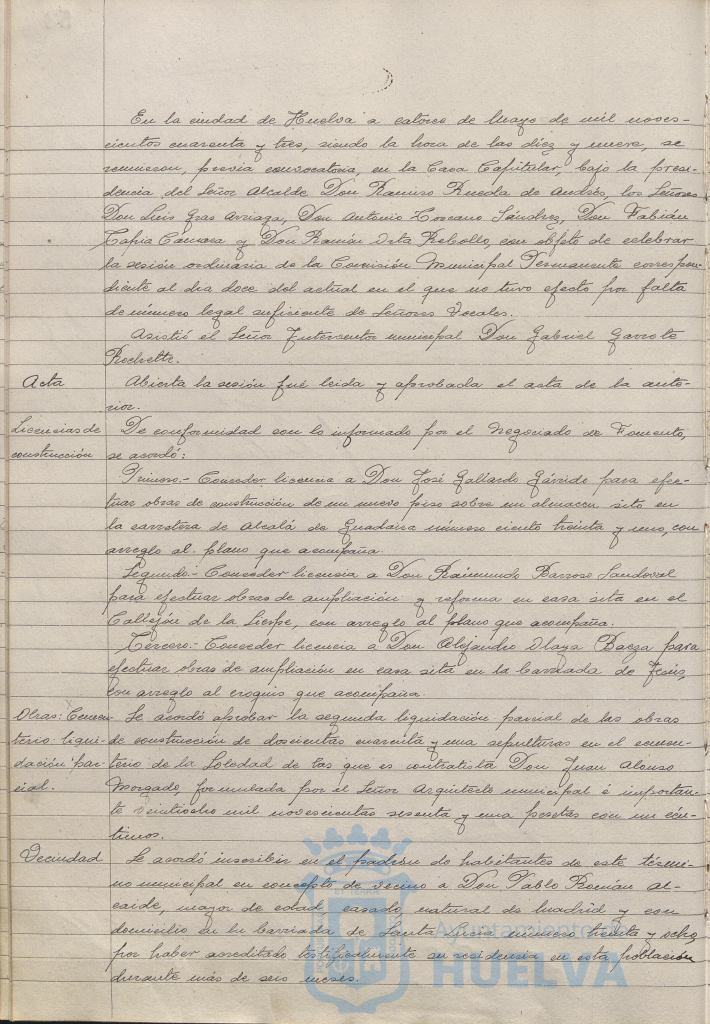 En la ciudad de Huelva a catorce de Mayo de mil noves-
cientos cuarenta y tres, siendo la hora de las diez y nueve, se
reunieron, previa convocatoria, en la Casa Capitular, bajo la presi-
dencia del Señor Alcalde Don Ramiro Rueda de Andrés, los Señores
Don Luis Gras Arriaga, Don Antonio Toscano Sánchez, Don Fabián
Tapia Cámara y Don Ramón Orta Rebollo, con objeto de celebrar
la sesión ordinaria de la Comisión Municipal Permanente correspon-
diente al dia doce del actual en el que no tuvo efecto por falta
de número legal suficiente de Señores Vocales.
Asistió el Señor Interventor municipal Don Gabriel Garrote
Acta
Abierta la sesión fué leida y aprobada el acta de la ante-
rior.
Licencias de
construcción
De conformidad con lo informado por el Negociado de Fomento,
se acordó:
Primero.- Conceder licencia a Don José Gallardo Gárrido para efec-
tuar obras de construcción de un nuevo piso sobre un almacen sito en
la carretera de Alcalá de Guadaira número ciento treinta y uno, con
arreglo al plano que acompaña.
Segundo.- Conceder licencia a Don Raimundo Barroso Sandoval
para efectuar obras de ampliación y reforma en casa sita en el
Callejón de la con arreglo al plano que acompaña.
Tercero.- Conceder licencia a Don Alejandro Olaya Baeza para
efectuar obras de ampliación en casa sita en la barriada de
con arreglo al croquis que acompaña.
Obras: Cemen-
terio: liqui-
dación par-
cial.
Se acordó aprobar la segunda liquidación parcial de las obras
de construcción de doscientas cuarenta y una sepulturas en el cemen-
terio de la Soledad de las que es contratista Don Juan Alonso
Morgado, formulada por el Señor Arquitecto municipal é importan-
te veintiocho mil novescientas sesenta y una pesetas con un cén-
timos.
Vecindad
Se acordó inscribir en el padrón de habitantes de este térmi-
no municipal en concepto de vecino a Don Pablo Román Al-
caide, mayor de edad, casado, natural de Madrid y con
domicilio en la barriada de Santa Lucia número treinta y ocho,
por haber acreditado testificalmente su residencia en esta población
durante más de seis meses.
Ayuntamiento de
HUELVA